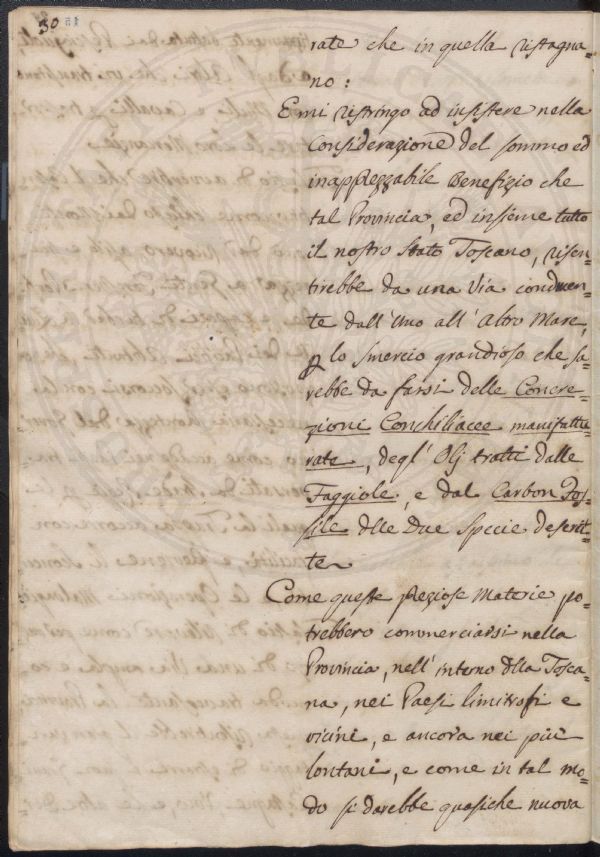 30
rate che in quella ristagna=
no:
E mi ristringo ad insistere nella
Considerazione del sommo ed
inapprezzabile Benefizio che
tal Provincia, ed insieme tutto
il nostro Stato Toscano, risen=
tirebbe da una Via conducen=
te dall'Uno all'Altro Mare,
p lo smercio grandioso che sa=
rebbe da farsi delle Concre=
zioni Conchiliacee manifattu=
rate, degl'Olj tratti dalle
Faggiole, e dal Carbon Fos=
sile dlle Due Specie descrit=
te
Come queste preziose Materie po=
trebbero commerciarsi nella
Provincia, nell'interno dlla Tosca=
na, nei Paesi limitrofi e
vicini, e ancora nei più
lontani, e come in tal mo=
do si darebbe quasiche nuova